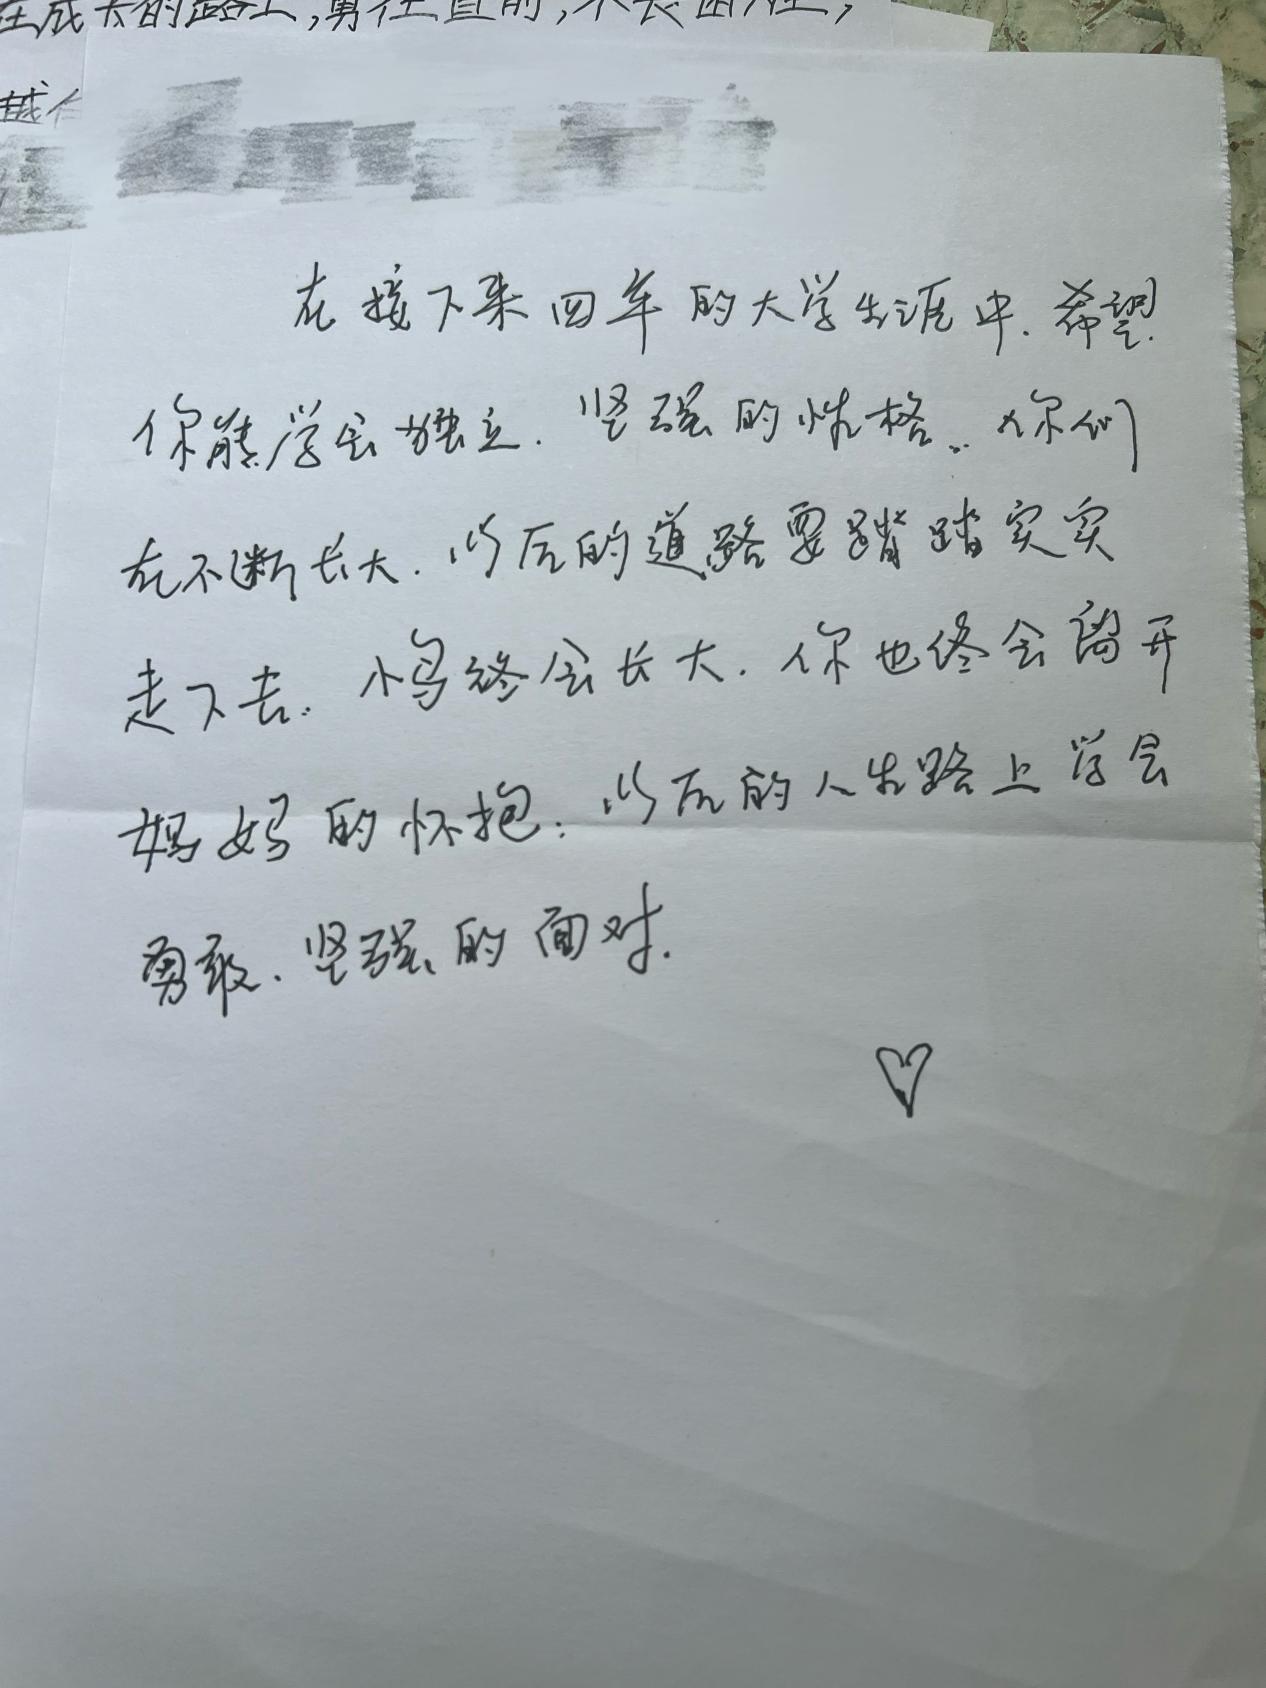 在成长的路上,勇往直前,不畏困难,
越
在接下来四年的大学生涯中.希望.
你能学会独立.坚强的性格..你们
在不断长大.以后的道路要踏踏实实
走下去.小鸟终会长大.你也终会离开
妈妈的怀抱:以后的人生路上学会
勇敢.坚强的面对.